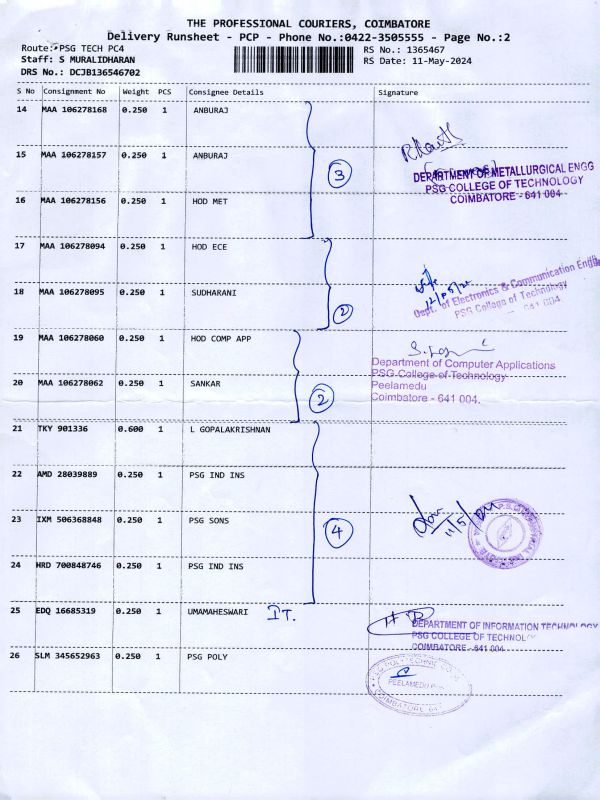 THE PROFESSIONAL COURIERS, COIMBATORE
Delivery Runsheet - PCP - Phone No.:0422-3505555 - Page No.:2
Route: PSG TECH PC4
RS No.: 1365467
Staff: S MURALIDHARAN
RS Date: 11-May-2024
DRS No.: DCJB136546702
S No Consignment No Weight PCS Consignee Details Signature
14 MAA 106278168 0.250 1 ANBURAJ
15 MAA 106278157 0.250 1 ANBURAJ
3
DEPARTMENT OF METALLURGICAL ENGG
PSG COLLEGE OF TECHNOLOGY
COIMBATORE - 641 004
16 MAA 106278156 0.250 1 HOD MET
17 MAA 106278094 0.250 1 HOD ECE
18 MAA 106278095 0.250 1 SUDHARANI
2
Dept. of Electronics & Communication Engg
PSG College of Technology
641 004.
19 MAA 106278060 0.250 1 HOD COMP APP
Department of Computer Applications
PSG College of Technology
Peelamedu
Coimbatore - 641 004.
20 MAA 106278062 0.250 1 SANKAR
2
21 TKY 901336 0.600 1 L GOPALAKRISHNAN
22 AMD 28039889 0.250 1 PSG IND INS
23 IXM 506368848 0.250 1 PSG SONS
4
11/5/24
24 HRD 700848746 0.250 1 PSG IND INS
25 EDQ 16685319 0.250 1 UMAMAHESWARI IT.
DEPARTMENT OF INFORMATION TECHNOLOGY
PSG COLLEGE OF TECHNOLOGY
COIMBATORE - 641 004
26 SLM 345652963 0.250 1 PSG POLY
PEELAMEDU
COIMBATORE